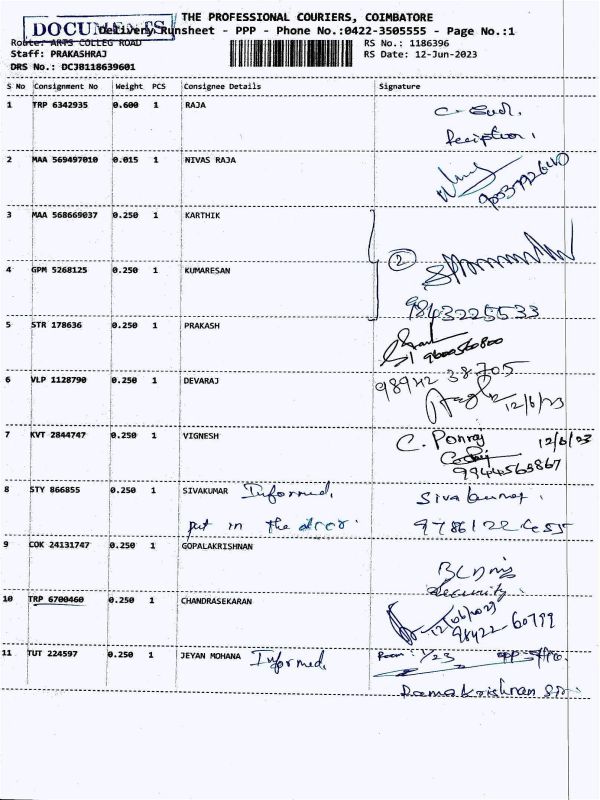 THE PROFESSIONAL COURIERS, COIMBATORE
DOCUMENTS
Delivery Runsheet - PPP - Phone No.:0422-3505555 - Page No.:1
Route: ARTS COLLEG ROAD RS No.: 1186396
Staff: PRAKASHRAJ RS Date: 12-Jun-2023
DRS No.: DCJB118639601
S No Consignment No Weight PCS Consignee Details Signature
1 TRP 6342935 0.600 1 RAJA
2 MAA 569497010 0.015 1 NIVAS RAJA
3 MAA 568669037 0.250 1 KARTHIK
2
4 GPM 5268125 0.250 1 KUMARESAN
9843225533
5 STR 178636 0.250 1 PRAKASH
9600560800
6 VLP 1128790 0.250 1 DEVARAJ 98942 38705
12/6/23
7 KVT 2844747 0.250 1 VIGNESH C. Ponraj 12/6/23
8 STY 866855 0.250 1 SIVAKUMAR Informed, Sivakumar.
put in the door.
9 COK 24131747 0.250 1 GOPALAKRISHNAN
security.
10 TRP 6700460 0.250 1 CHANDRASEKARAN
98422 60799
11 TUT 224597 0.250 1 JEYAN MOHANA Informed, Room: 1/23
Ramakrishnan Sir.